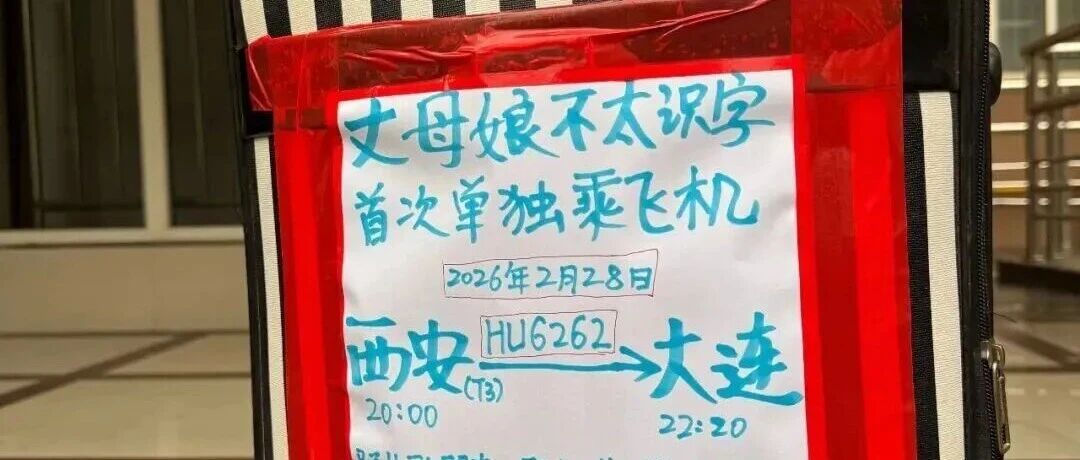 丈母娘不太识字
首次单独乘飞机
2026年2月28日
西安(T3) HU6262 → 大连
20:00 22:20